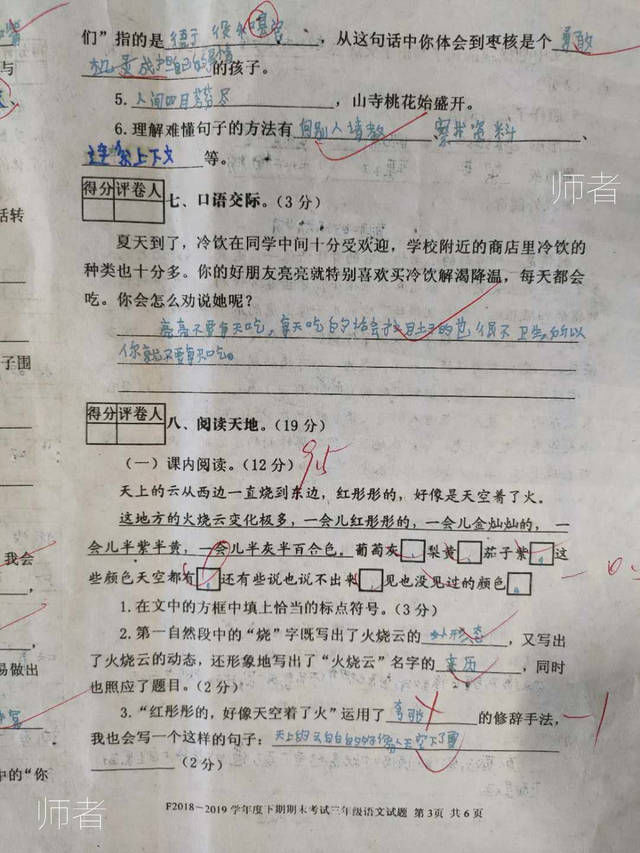 们”指的是，从这句话中你体会到枣核是个勇敢
的孩子。
5. 人间四月芳菲尽，山寺桃花始盛开。
6. 理解难懂句子的方法有向别人请教、
连系上下文等。
师者
得分 评卷人
七、口语交际。(3 分)
活转
夏天到了，冷饮在同学中间十分受欢迎，学校附近的商店里冷饮的
种类也十分多。你的好朋友亮亮就特别喜欢买冷饮解渴降温，每天都会
吃。你会怎么劝说她呢？
你就不要每天吃。
子围
得分 评卷人
八、阅读天地。(19 分)
(一) 课内阅读。(12 分) 9.5
天上的云从西边一直烧到东边，红彤彤的，好像是天空着了火。
这地方的火烧云变化极多，一会儿红彤彤的，一会儿金灿灿的，一
会儿半紫半黄，一会儿半灰半百合色。葡萄灰□梨黄□茄子紫□这
些颜色天空都有□还有些说也说不出来□见也没见过的颜色□
我会
1. 在文中的方框中填上恰当的标点符号。(3 分)
2. 第一自然段中的“烧”字既写出了火烧云的，又写出
了火烧云的动态，还形象地写出了“火烧云”名字的来历，同时
也照应了题目。(2 分)
易做出
3. “红彤彤的，好像天空着了火”运用了的修辞手法， -1
我也会写一个这样的句子：天上的云白白的好像
(2 分)
中的“你
师者
F2018～2019 学年度下期期末考试三年级语文试题 第 3 页 共 6 页